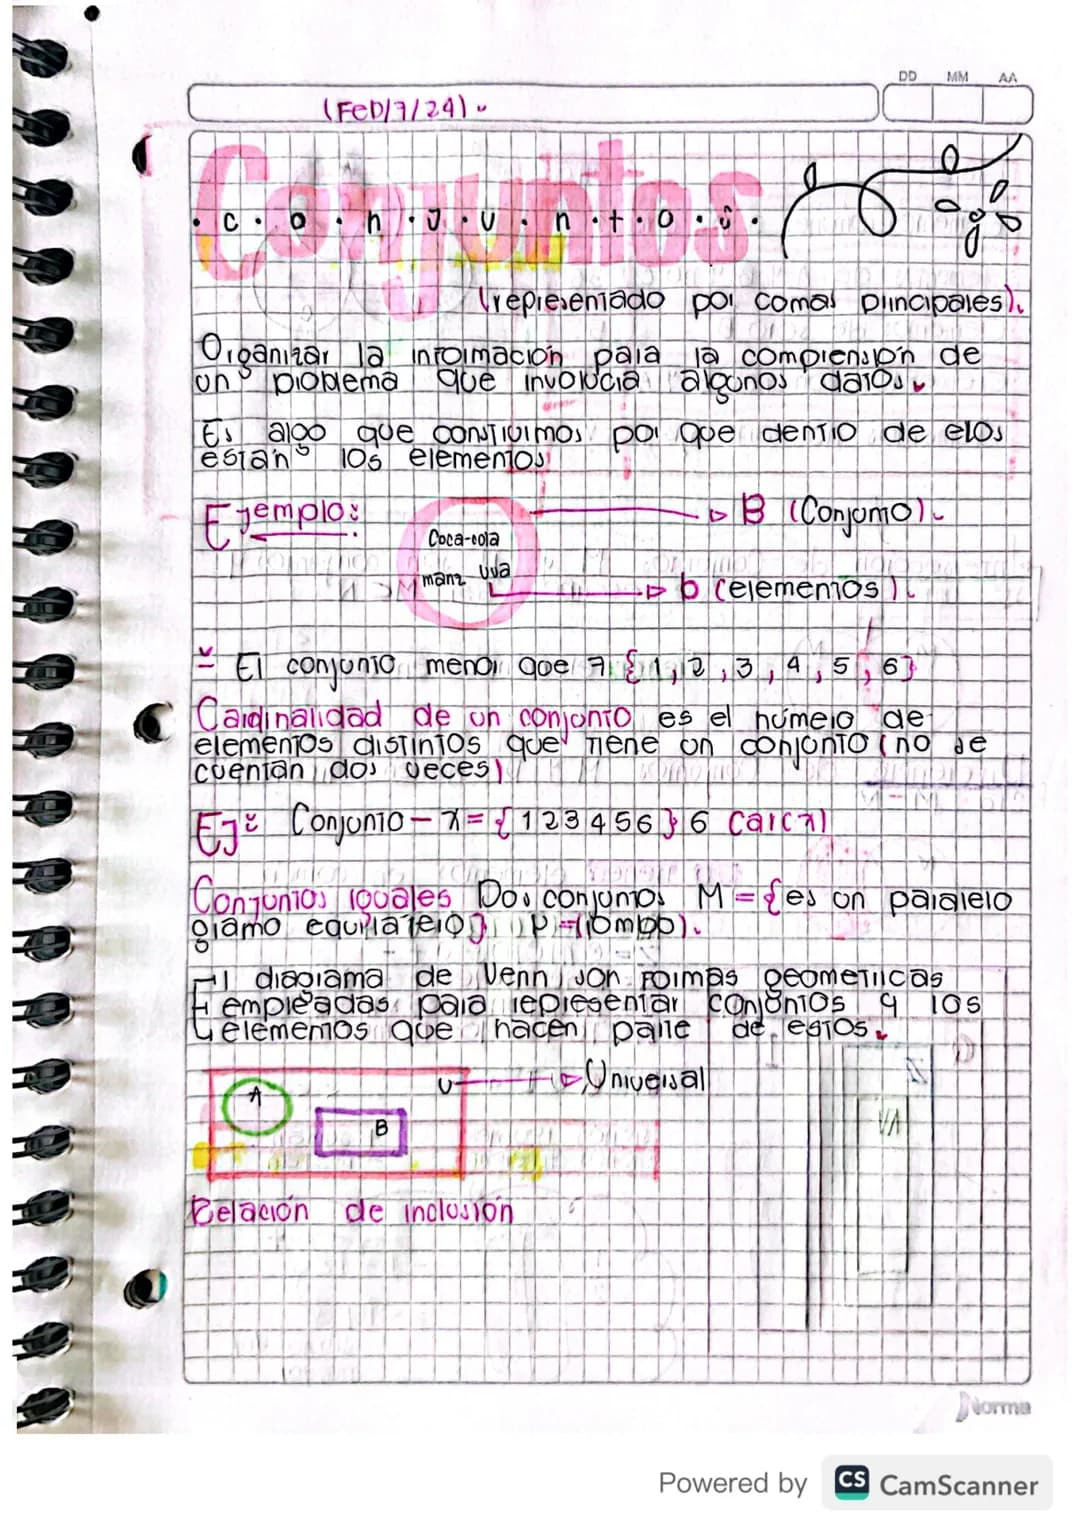 DD MM AA
(FeD/7/24).
Conjuntos
.c.o.n.J.u.n.t.o.s.
(representado por comas principales).
Organizar la información para la comprensión de
un problema que involucra algunos datos.
Es algo que construimos por que dentro de elos
están los elementos
Ejemplo:
B (Conjunto).
Coca-cola
manz uva
b (elementos).
El conjunto menor que 7 {1,2,3,4,5,6}
Cardinalidad de un conjunto es el número de
elementos distintos que tiene un conjunto (no se
cuentan dos veces)
Ej: Conjunto - x = {123456} 6 Carcx)
Conjuntos iguales Dos conjuntos M = {es un paralelo
gramo equilatero} P = (rombo).
El diagrama de Venn son Formas geometricas
empleadas para representar conjuntos y los
elementos que hacen parte de estos.
U Universal
A
B
Relación de inclusión
Norma
Powered by CS CamScanner